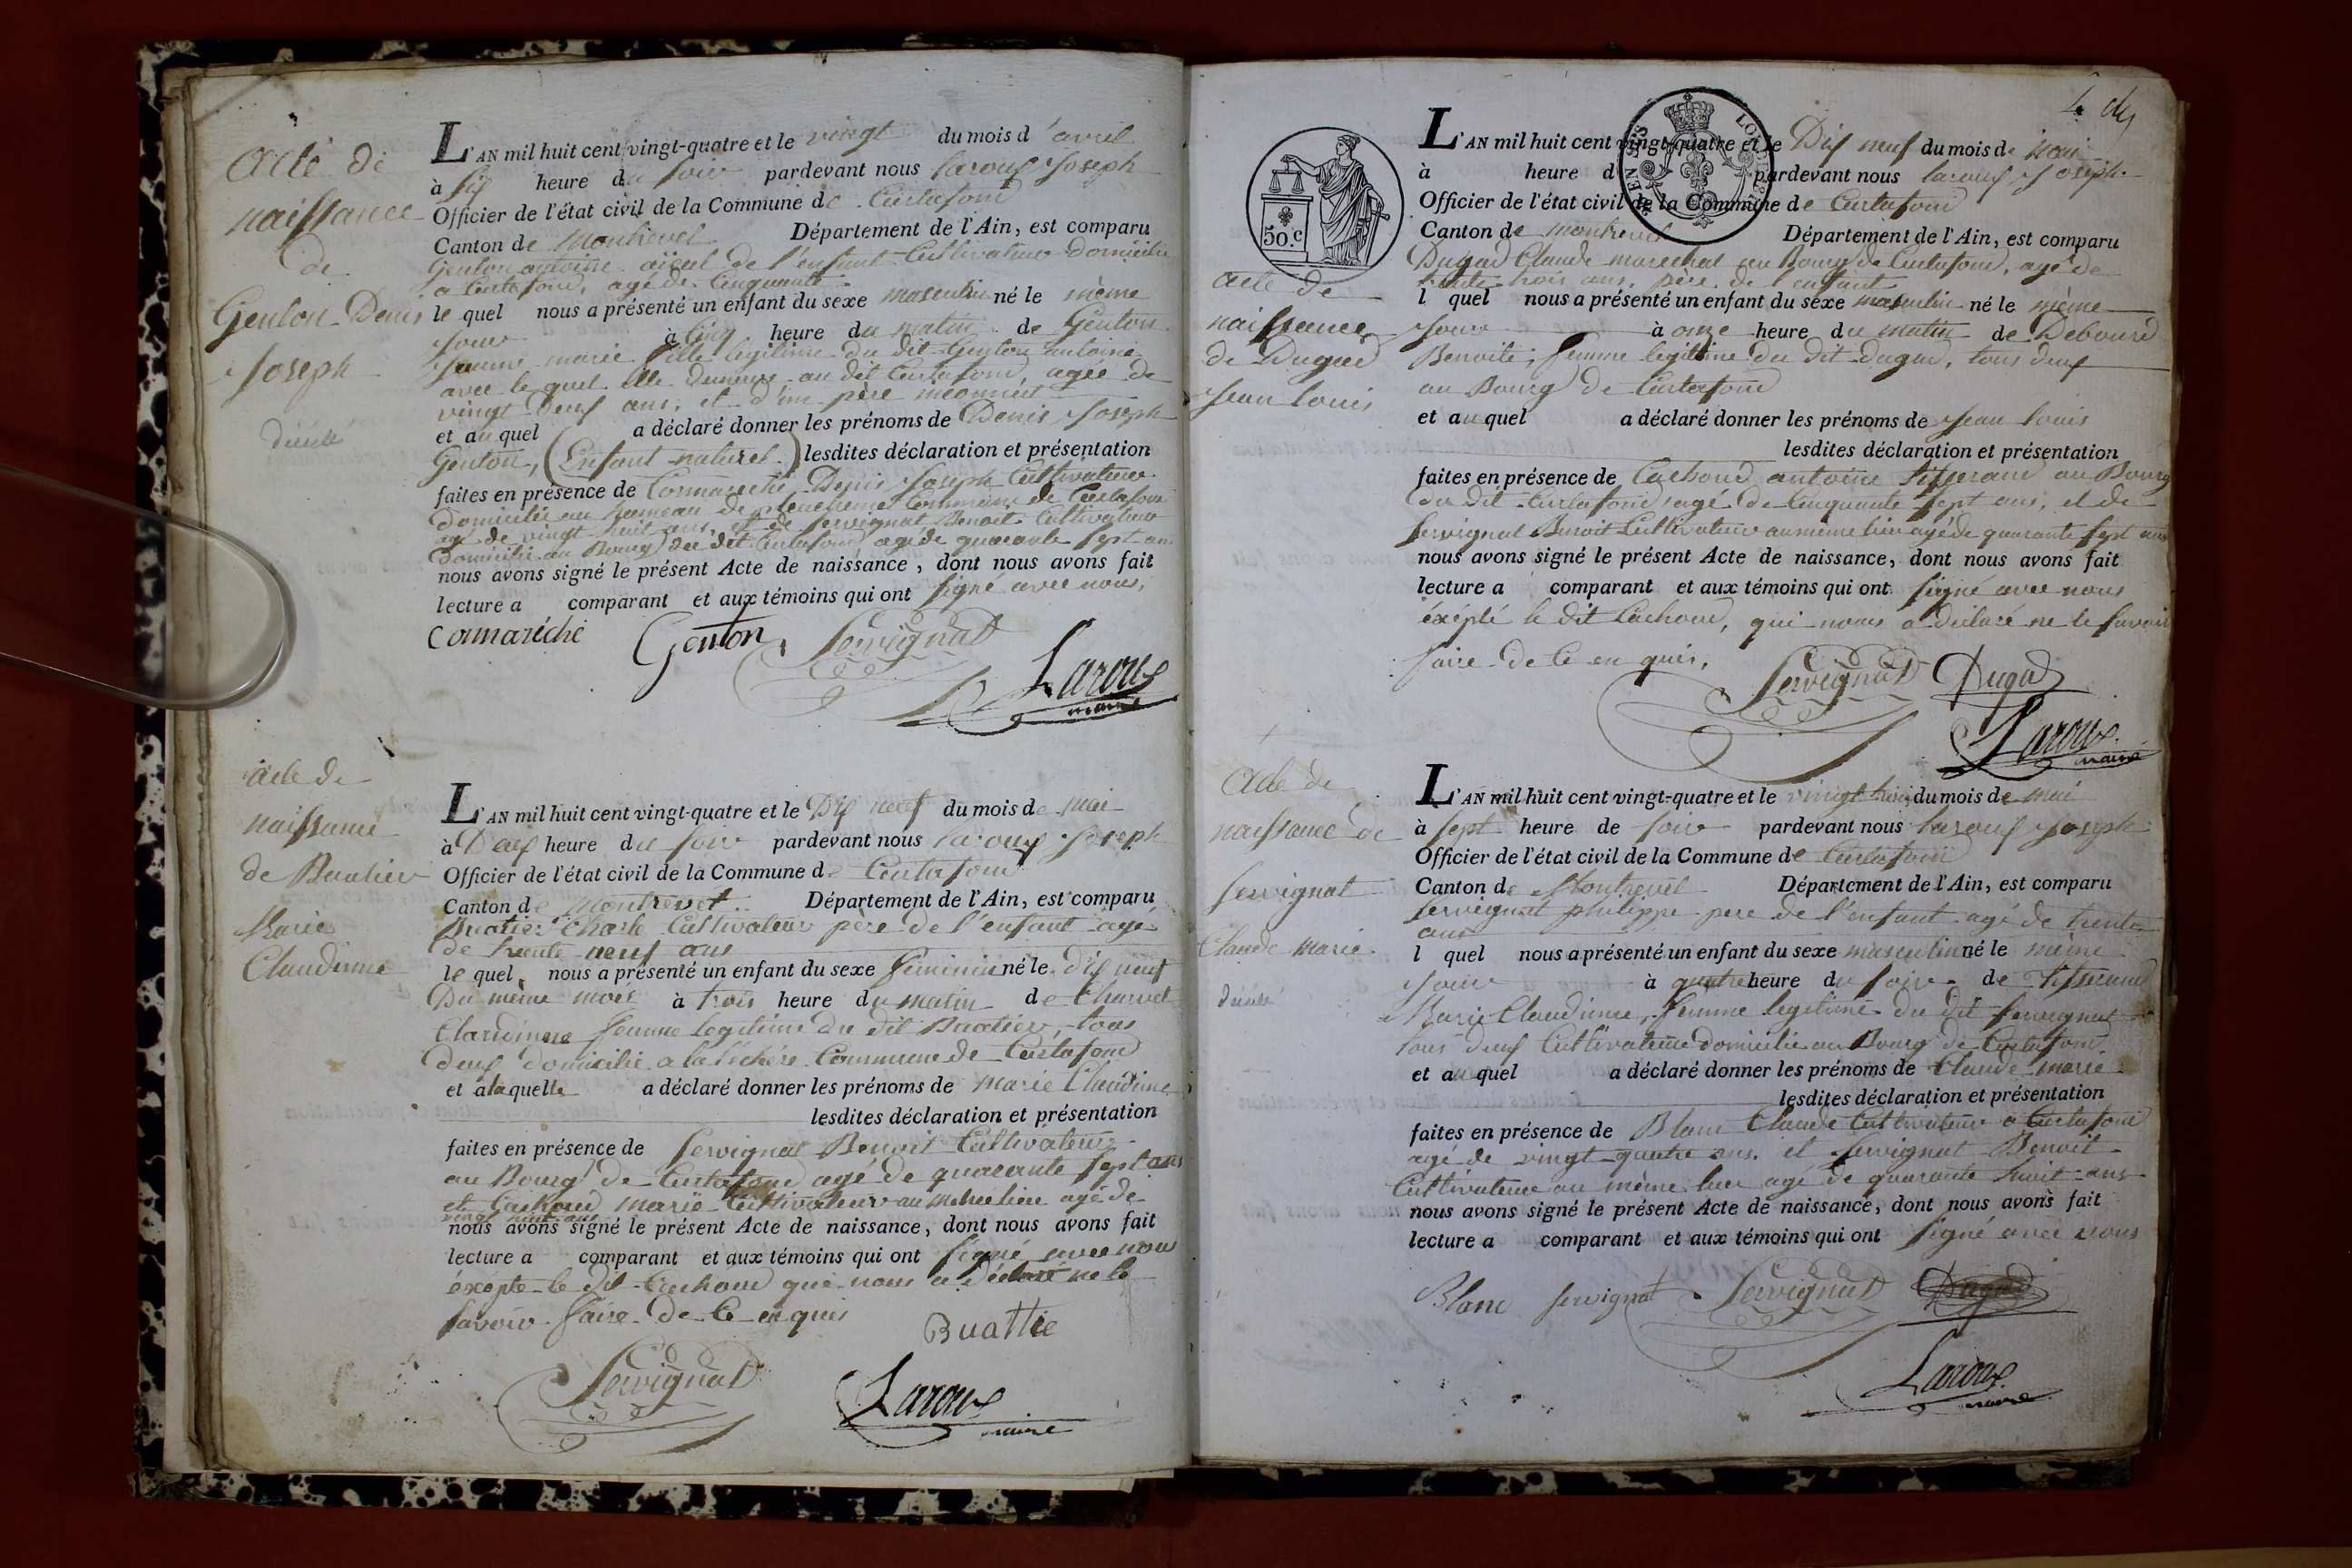 Acte de
naissance
de
Genton Denis
Joseph
décédé
L'AN mil huit cent vingt-quatre et le vingt du mois d'avril
à six heure du soir pardevant nous Laroux Joseph
Officier de l'état civil de la Commune de Curtafond
Canton de Montrevel Département de l'Ain, est comparu
Genton antoine aïeul de l'enfant Cultivateur Domicilié
a Curtafond, agé de Cinquante
le quel nous a présenté un enfant du sexe masculin né le même
jour à Cinq heure du matin de Genton
Jeanne marie fille legitime du dit Genton antoine
avec le quel elle demeure au dit Curtafond, agée de
vingt Deux ans, et d'un père inconnu
et au quel a déclaré donner les prénoms de Denis Joseph
Genton, (Enfant naturel) lesdites déclaration et présentation
faites en présence de Connaréché Denis Joseph Cultivateur
domicilié au hameau de Commune de Curtafond
agé de vingt huit ans, et de Servignat Benoit Cultivateur
Domicilié au Bourg du dit Curtafond agé de quarante sept ans
nous avons signé le présent Acte de naissance, dont nous avons fait
lecture a comparant et aux témoins qui ont signé avec nous,
Connaréché Genton Servignat
Laroux
maire
Acte de
naissance
de Buatier
Marie
Claudinne
L'AN mil huit cent vingt-quatre et le Dix neuf du mois de mai
à Deux heure du soir pardevant nous Laroux Joseph
Officier de l'état civil de la Commune de Curtafond
Canton de Montrevel Département de l'Ain, est comparu
Buatier Charle Cultivateur père de l'enfant agé
de trente neuf ans
le quel nous a présenté un enfant du sexe féminin né le dix neuf
Du même mois à trois heure du matin de Charvet
Claudinne femme legitime du dit Buatier, tous
deux domicilié a la Léchére Commune de Curtafond
et à la quelle a déclaré donner les prénoms de Marie Claudinne
lesdites déclaration et présentation
faites en présence de Servignat Benoit Cultivateur
au Bourg de Curtafond agé de quarante sept ans
et Cachoud marie Cultivateur au même lieu agé de
vingt huit ans
nous avons signé le présent Acte de naissance, dont nous avons fait
lecture a comparant et aux témoins qui ont signé avec nous
éxépté le dit Cachoud que nous a déclaré ne le
savoir faire de Ce enquis
Buattie
Servignat Laroux
maire
50.c
L'AN mil huit cent vingt-quatre et le Dix neuf du mois de Mai
à heure d pardevant nous Laroux Joseph
Officier de l'état civil de la Commune de Curtafond
Canton de Montrevel Département de l'Ain, est comparu
Dugad Claude marechal au Bourg de Curtafond, agé de
trente trois ans, père de l'enfant
Acte de
naissance
de Dugad
Jean Louis
l quel nous a présenté un enfant du sexe masculin né le même
Jour à onze heure du matin de Debourd
Benoite, femme legitime du dit Dugad, tous deux
au Bourg de Curtafond
et au quel a déclaré donner les prénoms de Jean Louis
lesdites déclaration et présentation
faites en présence de Cachoud antoine tisserand au Bourg
du dit Curtafond agé de Cinquante sept ans, et de
Servignat Benoit Cultivateur au même lieu agé de quarante sept ans
nous avons signé le présent Acte de naissance, dont nous avons fait
lecture a comparant et aux témoins qui ont signé avec nous
éxépté le dit Cachoud, qui nous a déclaré ne le savoir
faire de Ce en quis,
Servignat Dugad
Laroux
maire
Acte de
naissance de
Servignat
Claude Marie
décédé
L'AN mil huit cent vingt-quatre et le vingt trois du mois de mai
à sept heure de soir pardevant nous Laroux Joseph
Officier de l'état civil de la Commune de Curtafond
Canton de Montrevel Département de l'Ain, est comparu
Servignat philippe pere de l'enfant agé de trente
ans
l quel nous a présenté un enfant du sexe masculin né le même
jour à quatre heure du soir de Tisserand
Marie Claudinne, femme legitime du dit Servignat
tous deux Cultivateur domicilié au Bourg de Curtafond
et au quel a déclaré donner les prénoms de Claude marie
lesdites déclaration et présentation
faites en présence de Blanc Claude Cultivateur a Curtafond
agé de vingt quatre ans, et Servignat Benoit
Cultivateur au même lieu agé de quarante huit ans
nous avons signé le présent Acte de naissance, dont nous avons fait
lecture a comparant et aux témoins qui ont signé avec nous
Blanc Servignat Servignat Dugad
Laroux
maire